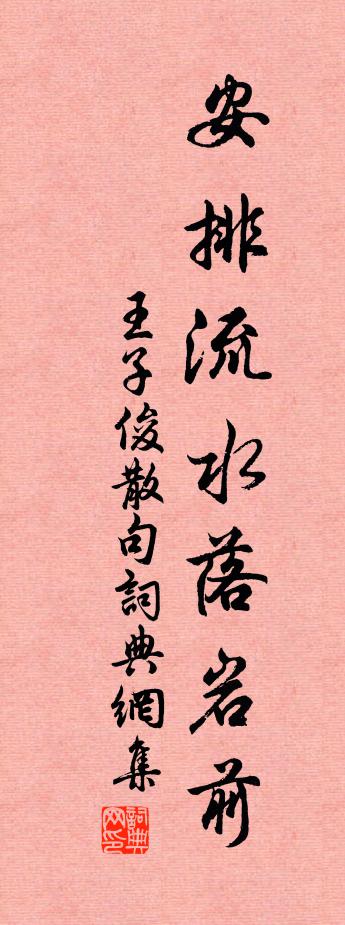 安排流水落岩前
王子俊散句詞典網集
詞典网印